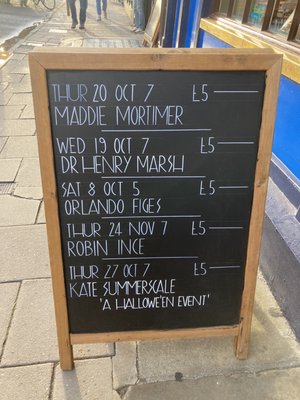 THUR 20 OCT 7 £5
MADDIE MORTIMER
WED 19 OCT 7 £5
DR HENRY MARSH
SAT 8 OCT 5 £5
ORLANDO FIGES
THUR 24 NOV 7 £5
ROBIN INCE
THUR 27 OCT 7 £5
KATE SUMMERSCALE
'A HALLOWE'EN EVENT'